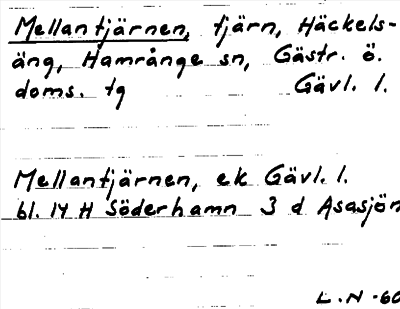 Mellantjärnen, tjärn, Häckels-
äng, Hamrånge sn, Gästr. ö.
doms. tg Gävl. l.
Mellantjärnen, ek Gävl. l.
bl. 14 H Söderhamn 3 d Asasjön
L. N -60